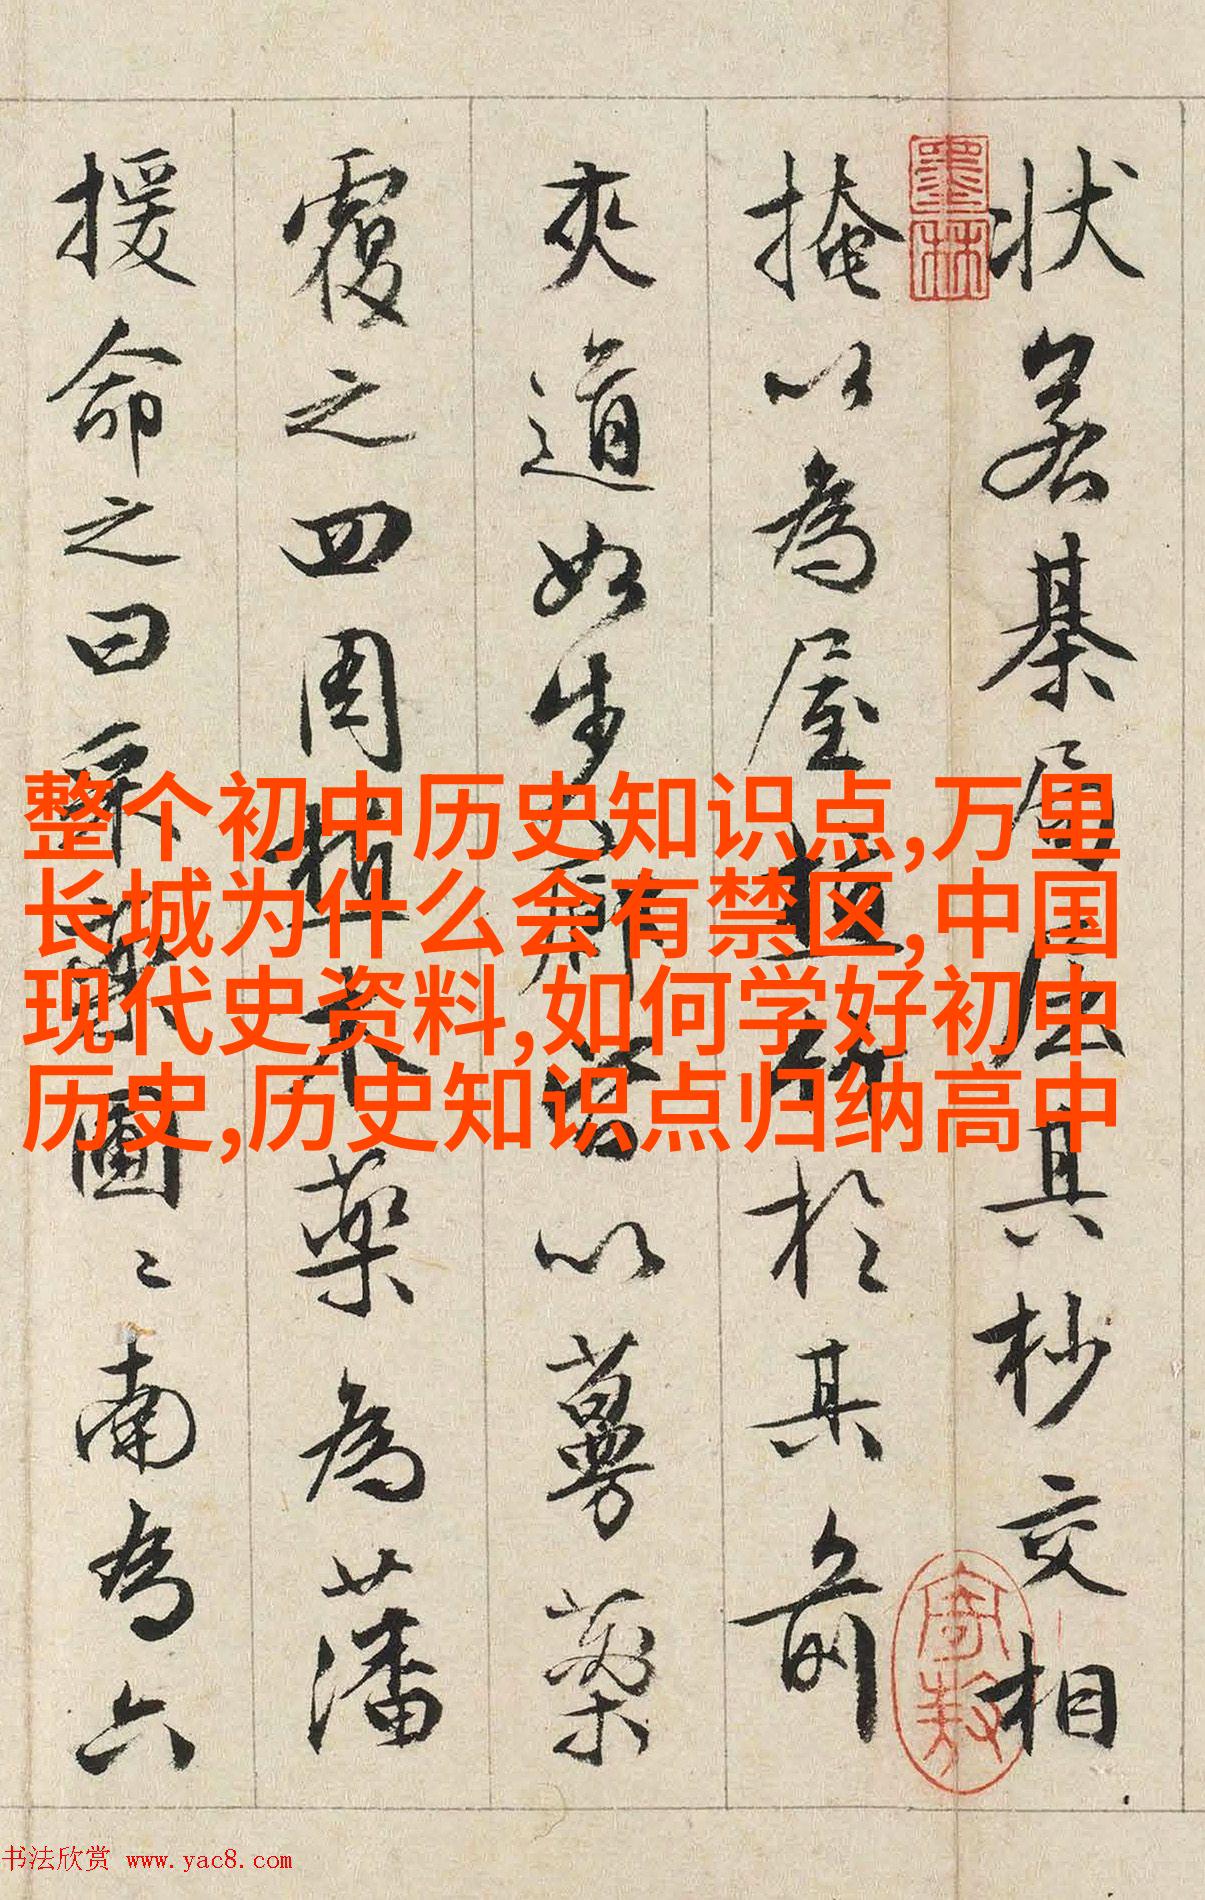 状若棊局屈其杪交相
掩以為屋植竹於其前
夾道如步廊皆以蔓藥
覆之四周植木藥為藩
援命之曰采藥圃〻南為六
墨林
整个初中历史知识点,万里
长城为什么会有禁区,中国
现代史资料,如何学好初中
历史,历史知识点归纳高中
书法欣赏 www.yac8.com